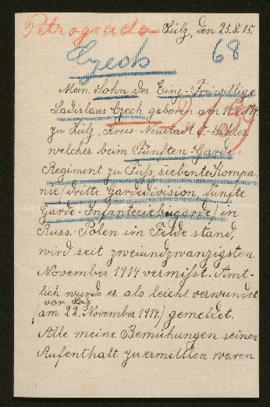 Petrograd Zülz, den 25.8.15.
Czech 68
Mein Sohn der Einj.-Freiwillige
Ladislaus Czech geboren am
zu Zülz, Kreis Neustadt O.-Schles.
welcher beim Fünften Garde
Regiment zu Fuß, siebente Kompa-
nie, dritte Gardedivision, fünfte
Garde-Infanteriebrigade, in
Russ.-Polen im Felde stand,
wird seit zweiundzwanzigsten
November 1914 vermißt. Amt-
lich wurde er als leicht verwundet
(am 22. November 1914.) gemeldet.
Alle meine Bemühungen seinen
Aufenthalt zu ermitteln waren